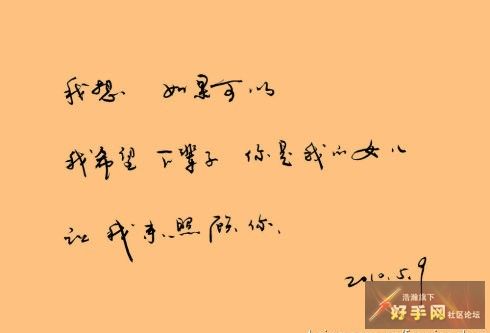 我想 如果可以
我希望 下辈子 你是我的女儿
让我来照顾你.
2010.5.9
浩瀚旗下
好手网 社区论坛